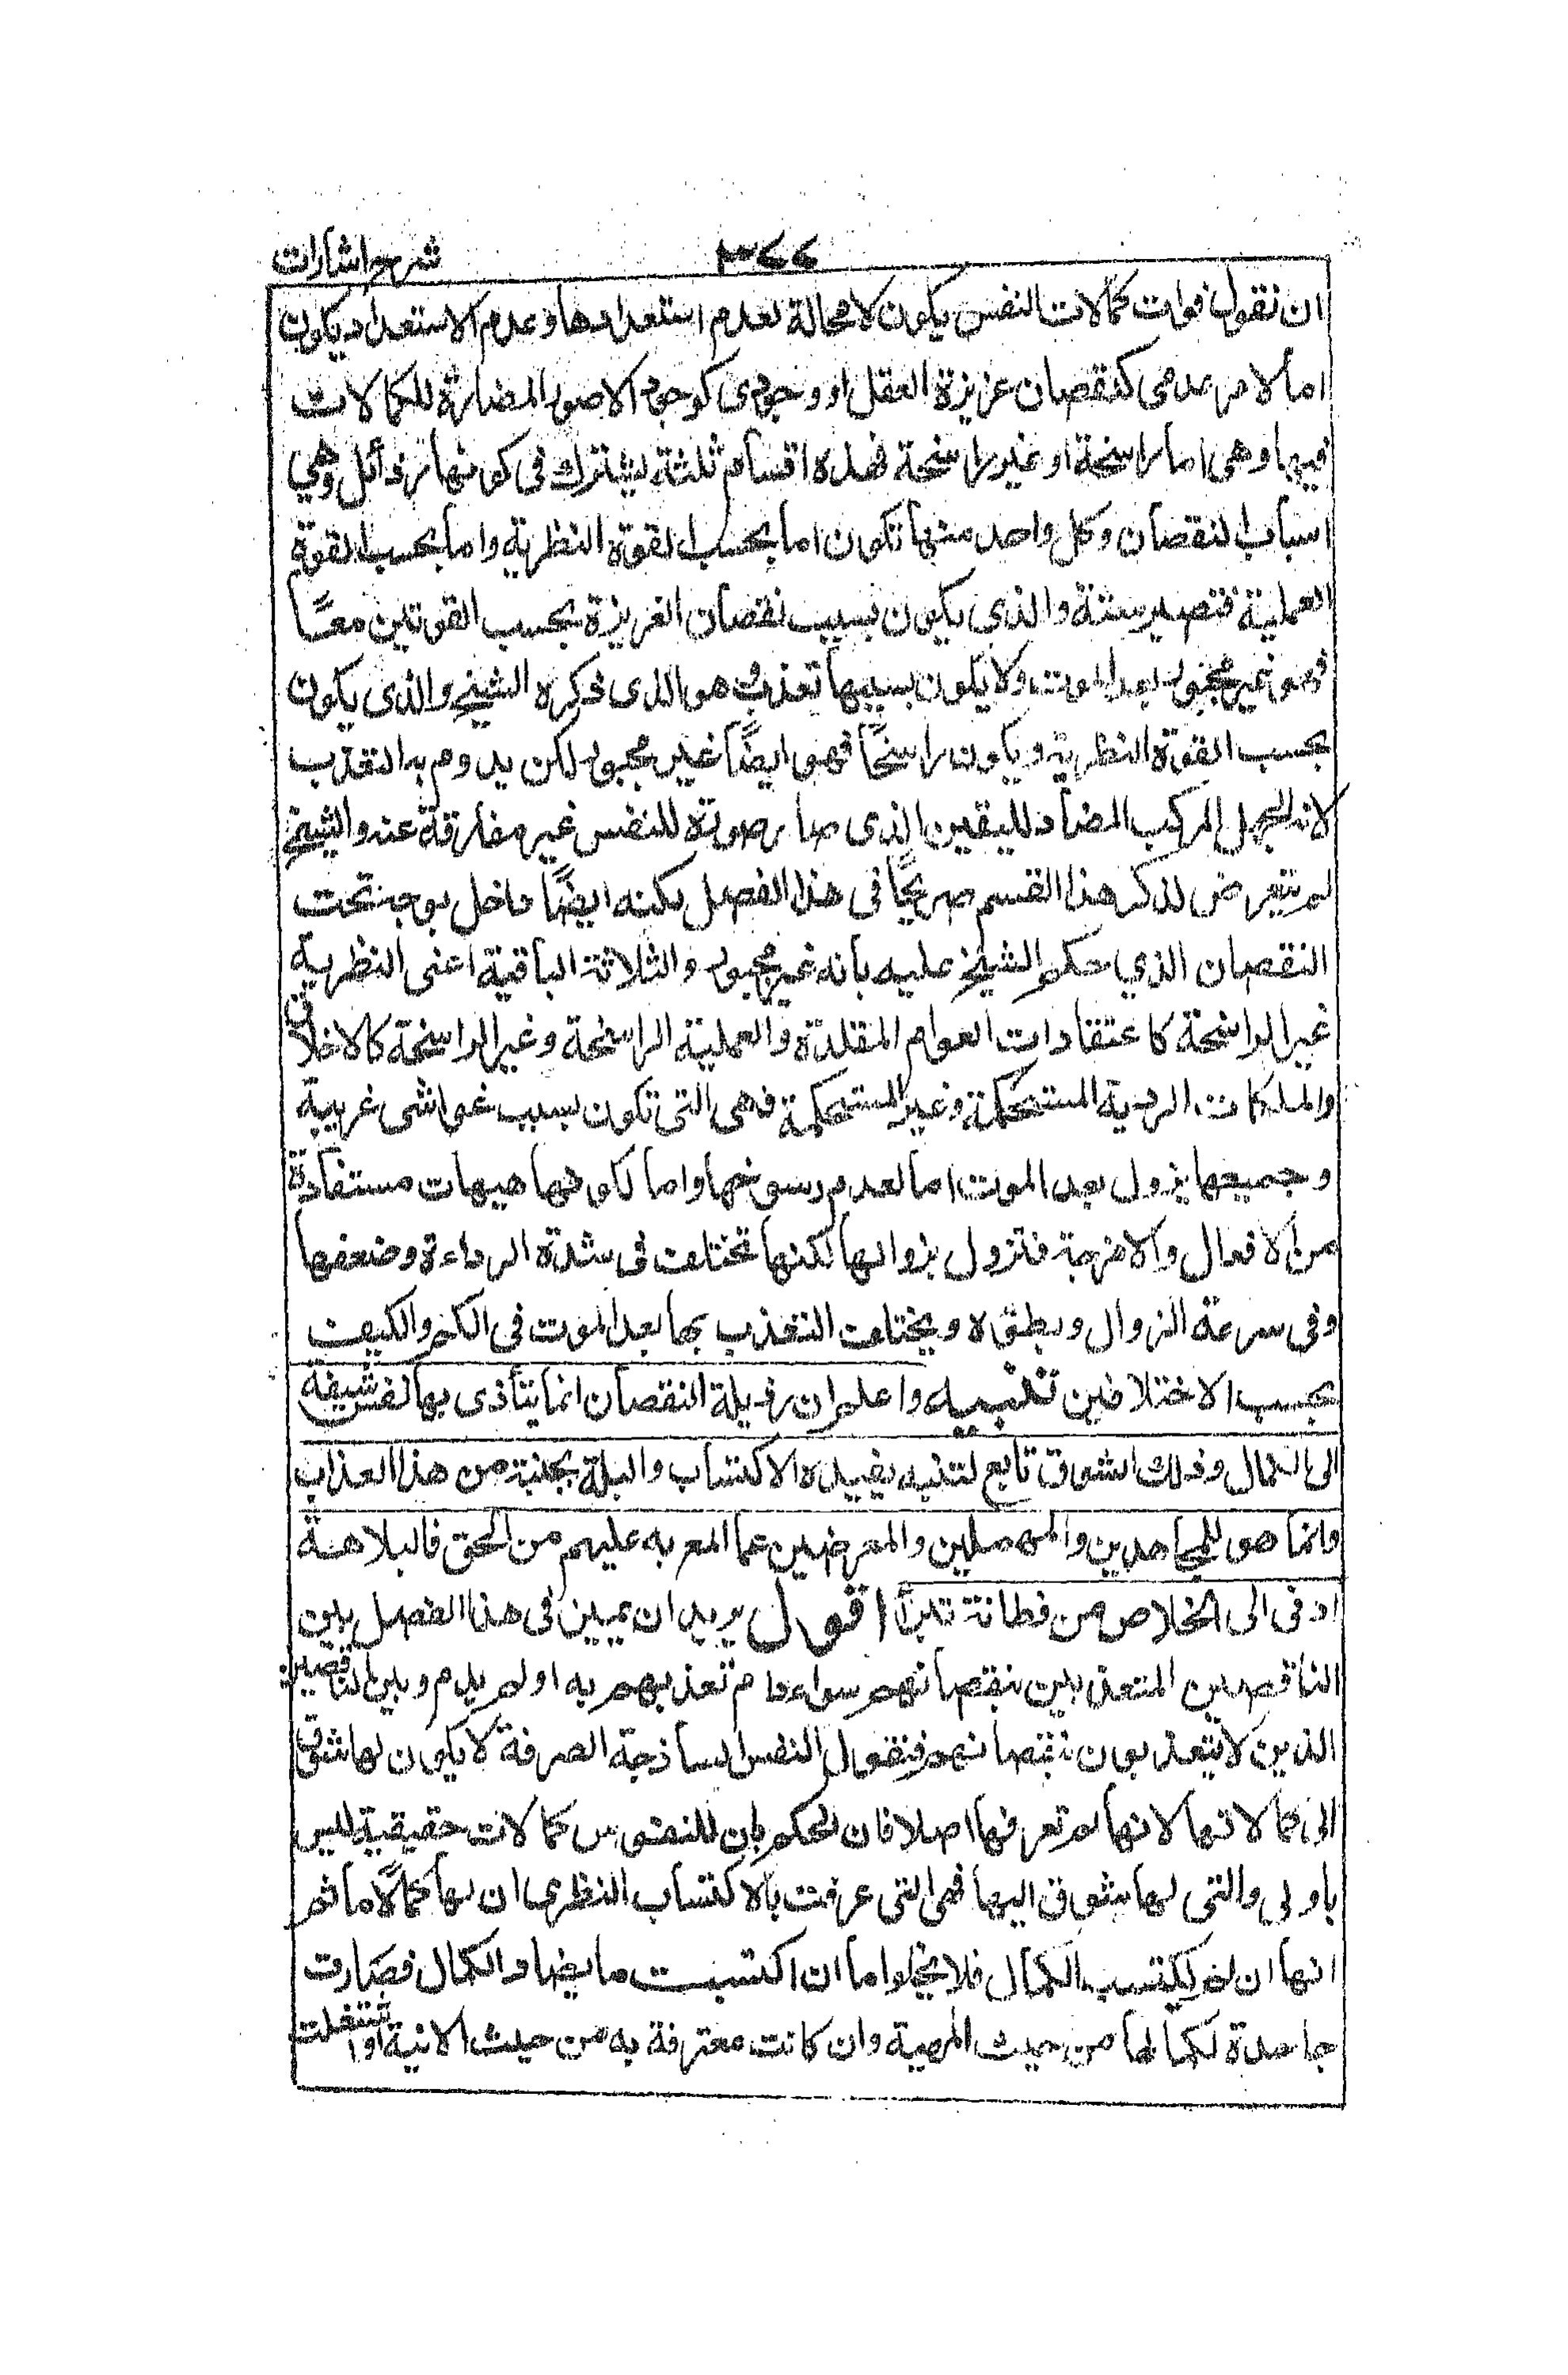 شرح اشارات
٣٧٧
ان نقول فوات كمالات النفس يكون لا محالة لعدم استعدادها وعدم الاستعداد يكون
اما لامر عدمى كنقصان غريزة العقل او وجودى كوجود الامور المضادة للكمالات
فيها وهى اما راسخة او غير راسخة فهذه اقسام ثلثة يشترك فى كونها رذائل وهي
اسباب النقصان وكل واحد منها تكون اما بحسب القوة النظرية واما بحسب القوة
العملية فتصير ستة والذي يكون بسبب نقصان الغريزة بحسب القوتين معًا
فهو غير مجبور بعد الموت ولا يكون بسببها تعذب هو الذى ذكره الشيخ والذى يكون
بحسب القوة النظرية ويكون راسخًا فهو ايضًا غير مجبور لكن يدوم به التعذب
لانه الجهل المركب المضاد لليقين الذى صار صورة للنفس غير مفارقة عنه والشيخ
لم يتعرض لذكر هذا القسم صريحًا فى هذا الفصل لكنه ايضًا داخل بوجه تحت
النقصان الذي حكم الشيخ عليه بانه غير مجبور والثلاثة الباقية اعنى النظرية
غير الراسخة كاعتقادات العوام المقلدة والعملية الراسخة وغير الراسخة كالاخلاق
والملكات الردية المستحكمة وغير المستحكمة فهى التى تكون بسبب غواشى غريبة
وجميعها يزول بعد الموت اما لعدم رسوخها واما لكونها هيهات مستفادة
من الافعال والامزجة فتزول بزوالها لكنها تختلف فى شدة الرداءة وضعفها
وفى سرعة الزوال وبطؤه ويختلف التعذب بها بعد الموت فى الكم والكيف
بحسب الاختلافين تنبيه واعلم ان رذيلة النقصان انما يتأذى بها لنفس شيقة
الى الكمال وذلك الشوق تابع لتنبه يفيده الاكتساب والبله بجنبة من هذا العذاب
وانما هو للجاحدين والمهملين والمعرضين عما المعر به عليهم من الحق فالبلاهة
ادنى الى الخلاص من فطانة تبرأ اقول يريد ان يميز فى هذا الفصل بين
الناقصين المتعذبين بنقصانهم سواء دام تعذبهم به او لم يدم وبين الناقصين
الذين لا يتعذبون بنقصانهم فنقول النفس الساذجة الصرفة لا يكون لها شوق
الى كمالاتها لانها لم تعرفها اصلا فان الحكم بان للنفوس كمالات حقيقية ليس
باولى والتى لها شوق اليها فهى التى عرفت بالاكتساب النظرى ان لها كمالًا ما ثم
انها ان لم يكتسب الكمال فلا يخلوا ما ان اكتسبت ما يضاد الكمال فصارت
جاحدة لكمالها من حيث المهية وان كانت معترفة به من حيث الانية او اشتغلت